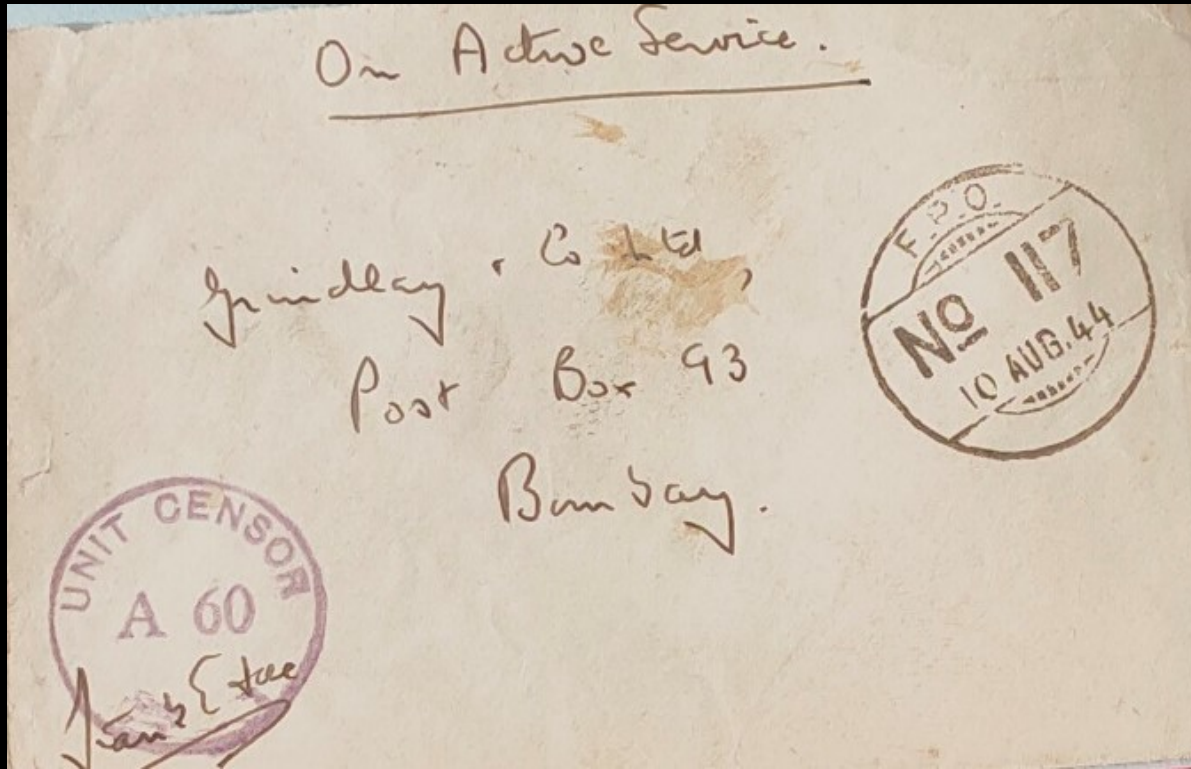 On Active Service.
Grindlay & Co Ltd,
Post Box 93
Bombay.
F.P.O.
No 117
10 AUG.44
UNIT CENSOR
A 60
Frank E